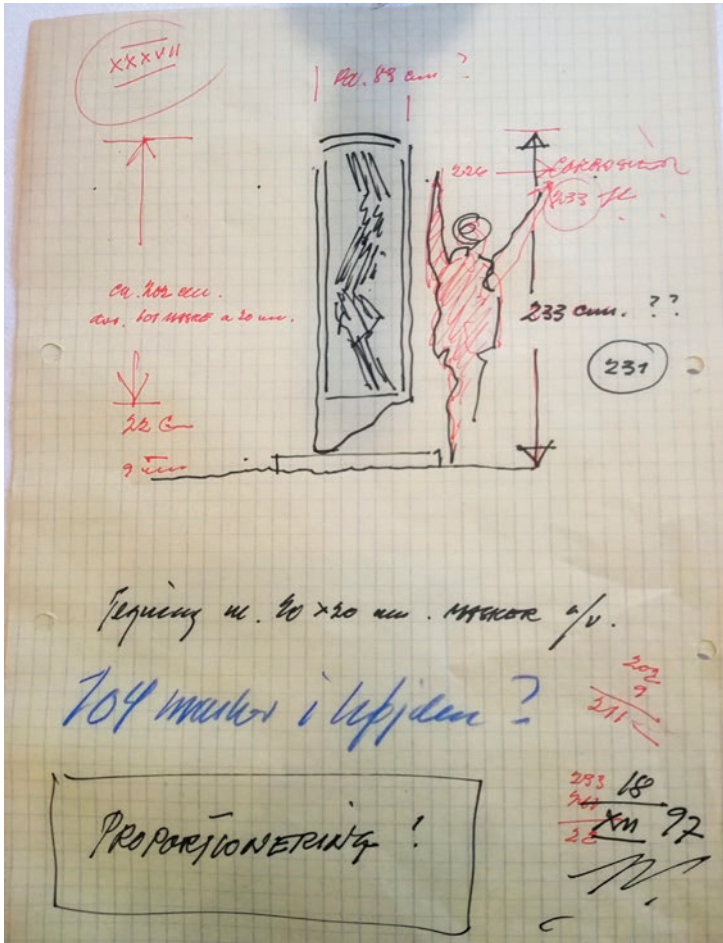 XXXVII
ca. 83 cm ?
224
233
ca. 202 cm.
101 MASKE a 20 mm.
233 cm. ??
231
22 C
9
Tegning m. 20 x 20 mm. MASKER a/v.
104 masker i højden ?
202
9
211
PROPORTIONERING !
233
211
22
18
XII 97